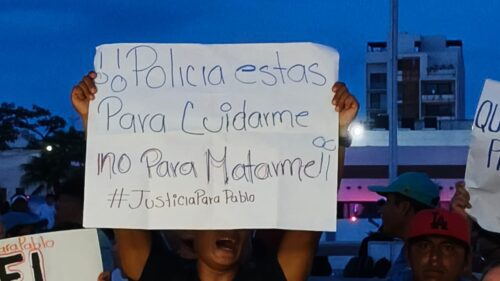 !!Policia estas
Para Cuidarme
no Para Matarme!!
#JusticiaParaPablo
QU
PA
araPablo
EI
LA